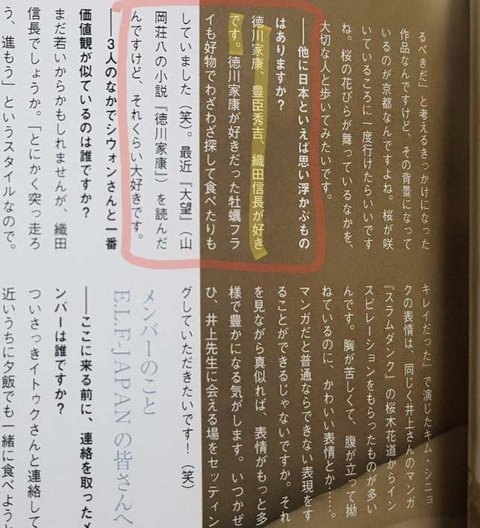 るべきだ」と考えるきっかけになった
作品なんですけど、その背景になって
いるのが京都なんですよね。桜が咲
いているころに一度行けたらいいです
ね。桜の花びらが舞っているなかを、
大切な人と歩いてみたいです。
——他に日本といえば思い浮かぶもの
はありますか?
徳川家康、豊臣秀吉、織田信長が好き
です。徳川家康が好きだった牡蠣フラ
イも好物でわざわざ探して食べたりも
していました(笑)。最近『大望』(山
岡荘八の小説『徳川家康』)を読んだ
んですけど、それくらい大好きです。
——3人のなかでシウォンさんと一番
価値観が似ているのは誰ですか?
まだ若いからかもしれませんが、織田
信長でしょうか。「とにかく突っ走ろ
う、進もう」というスタイルなので。
キレイだった』で演じたキム・シニョ
クの表情は、同じく井上さんのマンガ
『スラムダンク』の桜木花道からイン
スピレーションをもらったものが多い
んです。胸が苦しくて、腹が立って拗
ねているのに、かわいい表情とか……。
マンガだと普通ならできない表現をす
ることができるじゃないですか。それ
を見ながら真似れば、表情がもっと多
様で豊かになる気がします。いつかぜ
ひ、井上先生に会える場をセッティン
グしていただきたいです!(笑)
メンバーのこと
E.L.F-JAPANの皆さんへ
——ここに来る前に、連絡を取ったメ
ンバーは誰ですか?
ついさっきイトゥクさんと連絡して
近いうちに夕飯でも一緒に食べようと